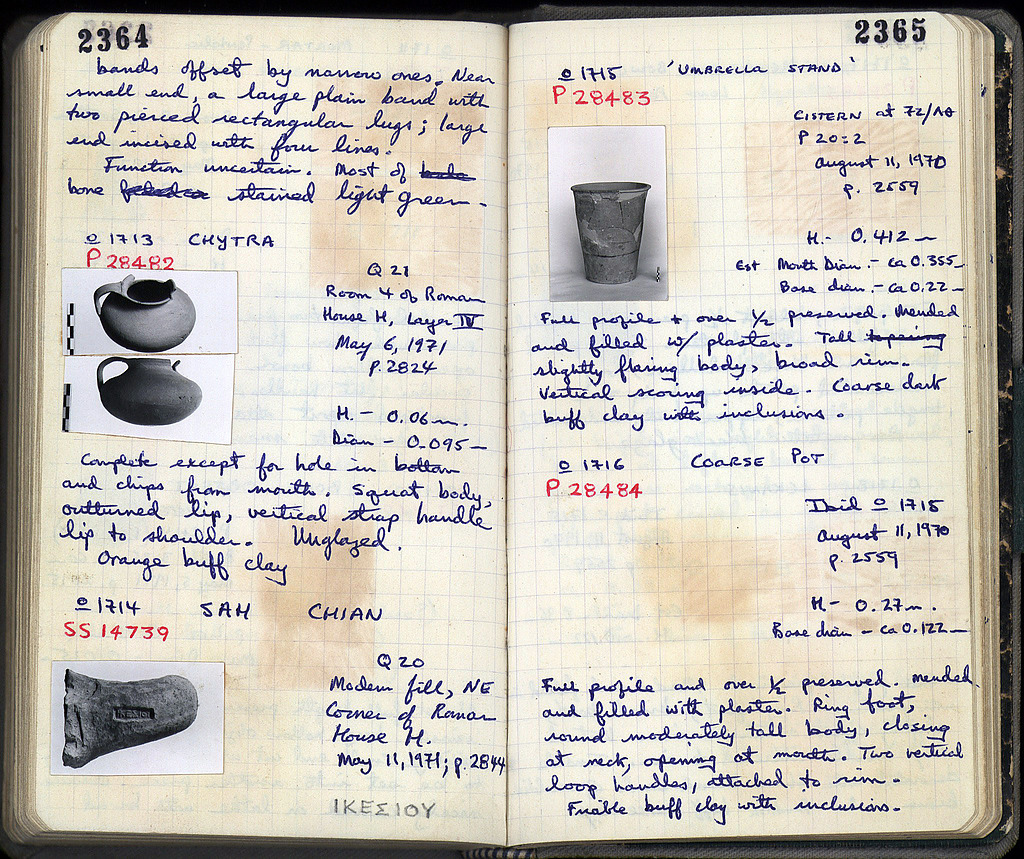 2364
bands offset by narrow ones. Near
small end, a large plain band with
two pierced rectangular lugs; large
end incised with four lines.
Function uncertain. Most of
bone stained light green.
o 1713 CHYTRA
P 28482
Q 21
Room 4 of Roman
House H, Layer IV
May 6, 1971
p. 2824
H. - 0.06 m.
Diam - 0.095
Complete except for hole in bottom
and chips from mouth. Squat body,
outturned lip, vertical strap handle
lip to shoulder. Unglazed.
Orange buff clay
o 1714 SAH CHIAN
SS 14739
Q 20
Modern fill, NE
Corner of Roman
House H.
May 11, 1971; p. 2844
ΙΚΕΣΙΟΥ
ΙΚΕΣΙΟΥ
2365
o 1715 'UMBRELLA STAND'
P 28483
CISTERN at 72/ΛΘ
P 20:2
August 11, 1970
p. 2559
H. - 0.412
Est Mouth Diam. - ca 0.355
Base diam. - ca 0.22
Full profile + over 1/2 preserved. Mended
and filled w/ plaster. Tall tapering
slightly flaring body, broad rim.
Vertical scoring inside. Coarse dark
buff clay with inclusions.
o 1716 COARSE POT
P 28484
Ibid o 1715
August 11, 1970
p. 2559
H - 0.27 m.
Base diam - ca 0.122
Full profile and over 1/2 preserved. mended
and filled with plaster. Ring foot,
round moderately tall body, closing
at neck, opening at mouth. Two vertical
loop handles, attached to rim.
Friable buff clay with inclusions.